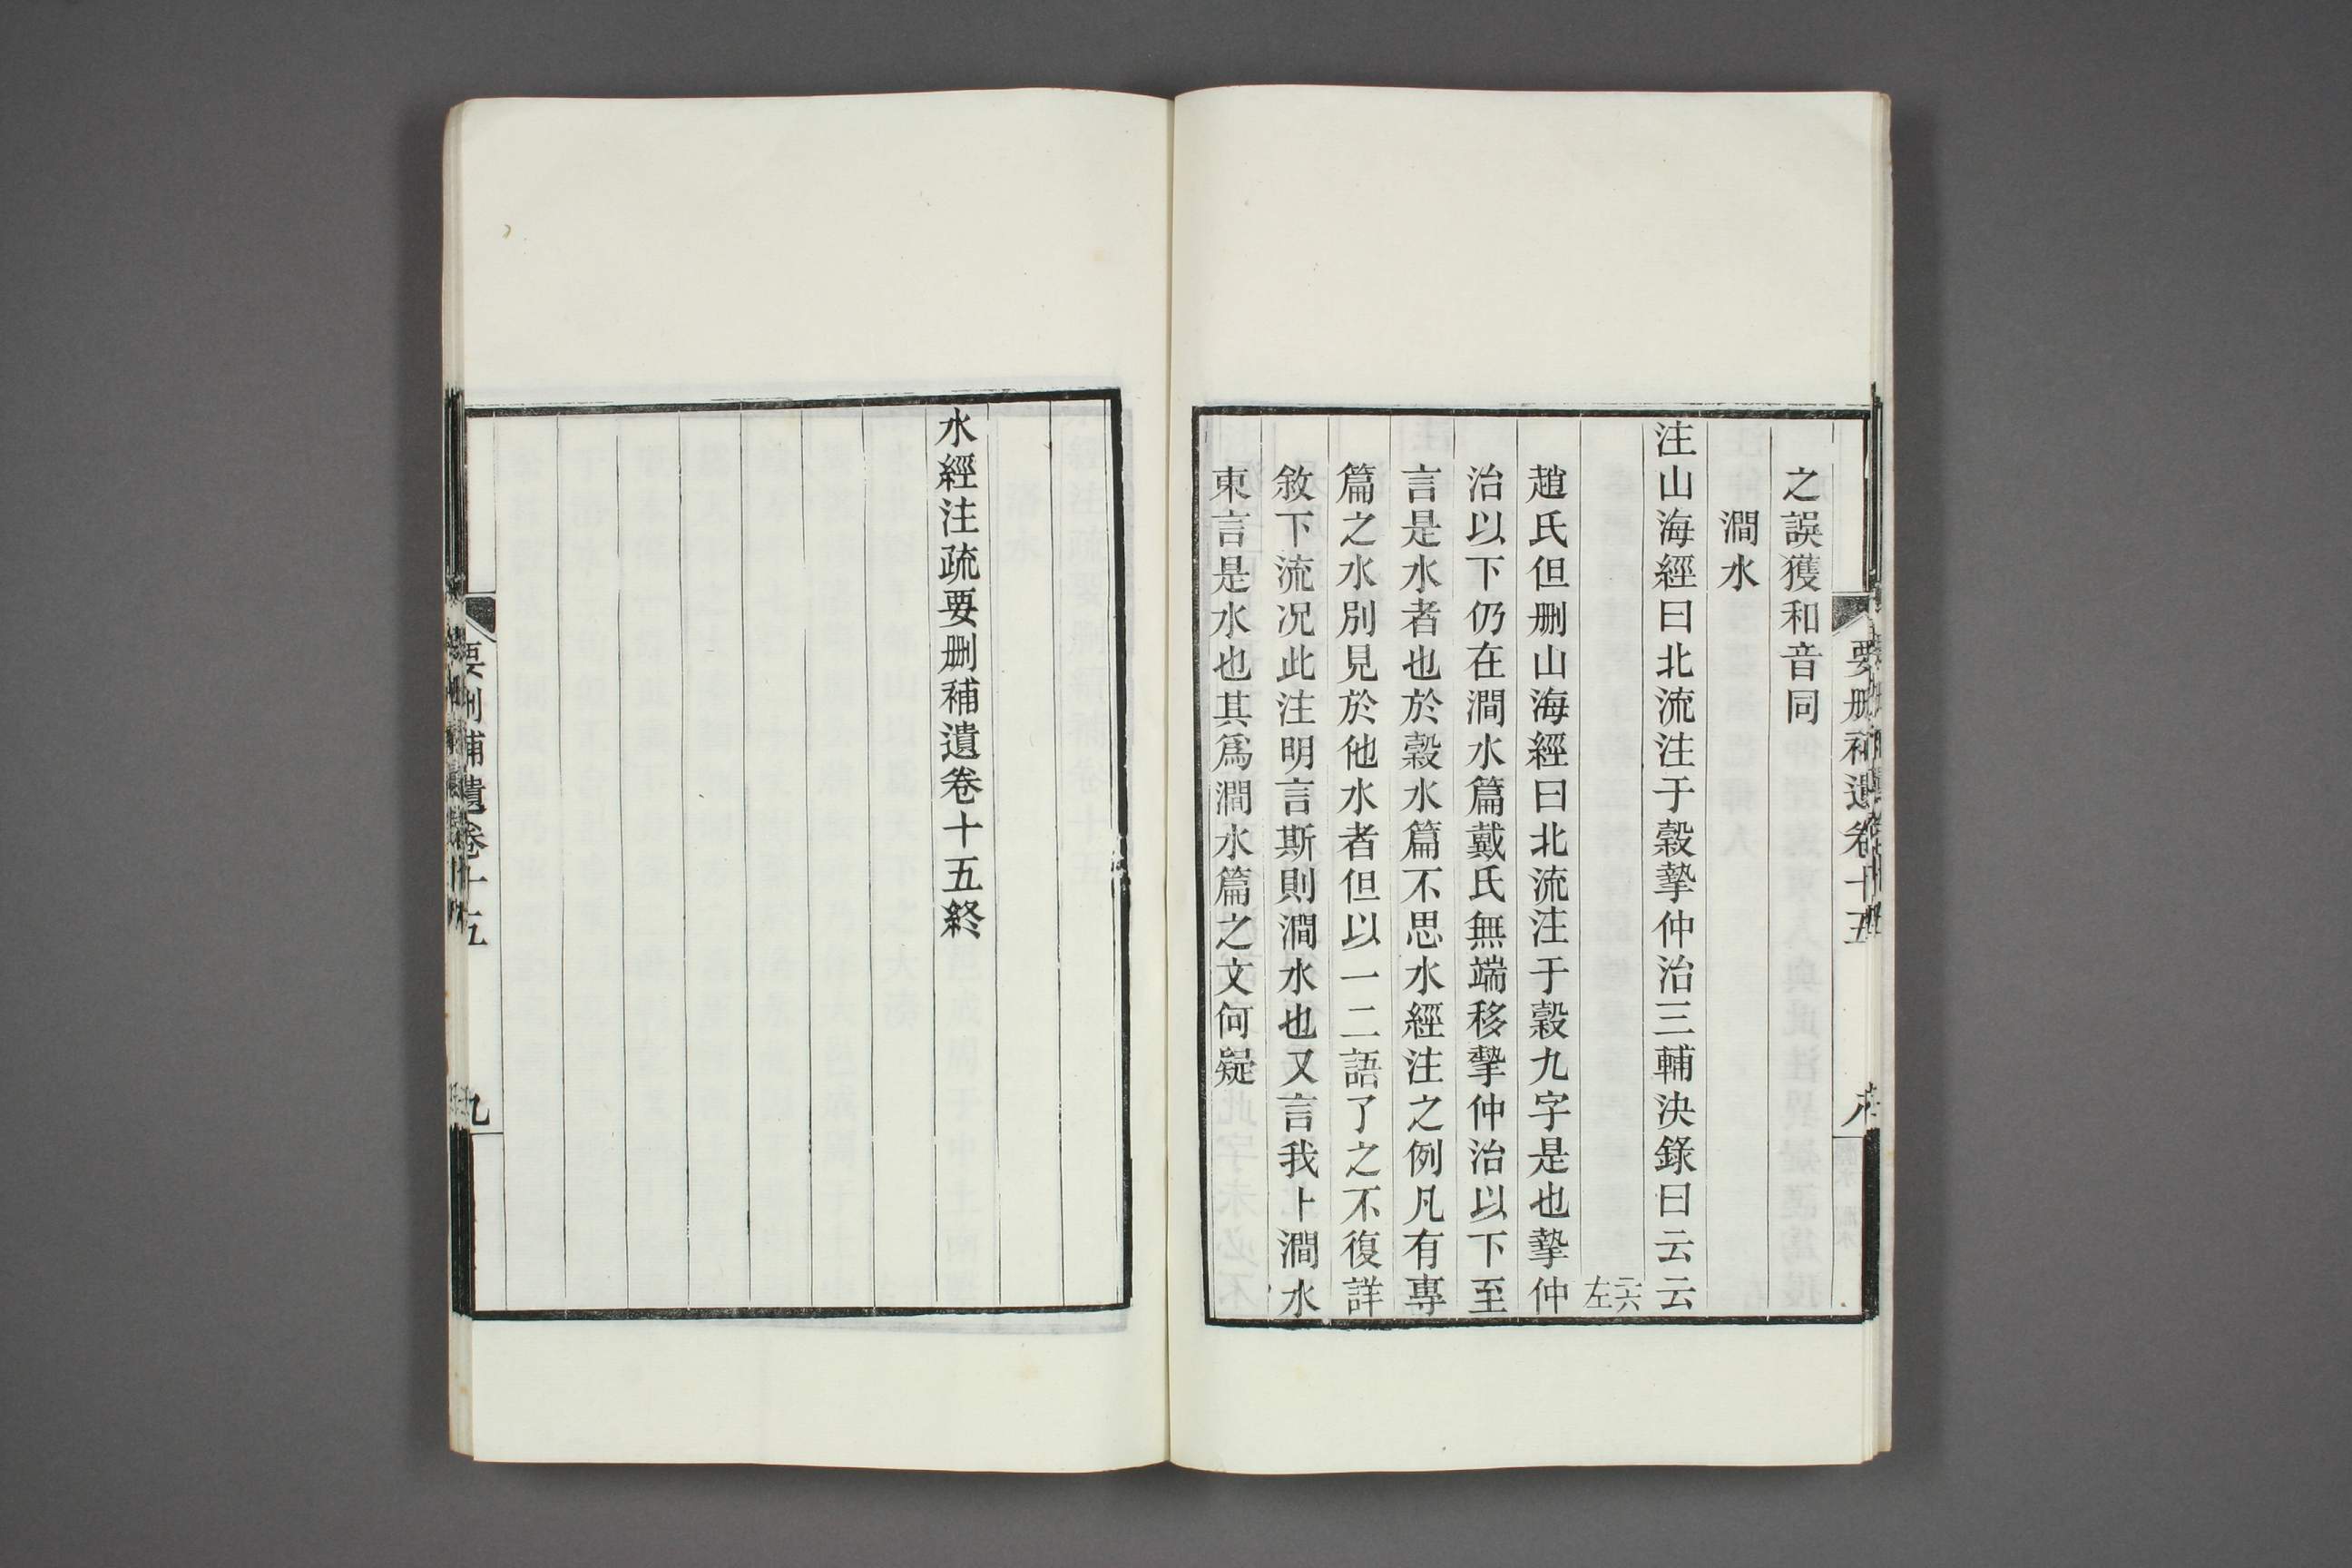 之誤獲和音同
澗水
注山海經曰北流注于穀摯仲治三輔決錄曰云云
二六左
趙氏但刪山海經曰北流注于穀九字是也摯仲
治以下仍在澗水篇戴氏無端移摯仲治以下至
言是水者也於穀水篇不思水經注之例凡有專
篇之水別見於他水者但以一二語了之不復詳
敘下流况此注明言斯則澗水也又言我卜澗水
東言是水也其爲澗水篇之文何疑
要刪補遺卷十五
水經注疏要刪補遺卷十五終
要刪補遺卷十五
九